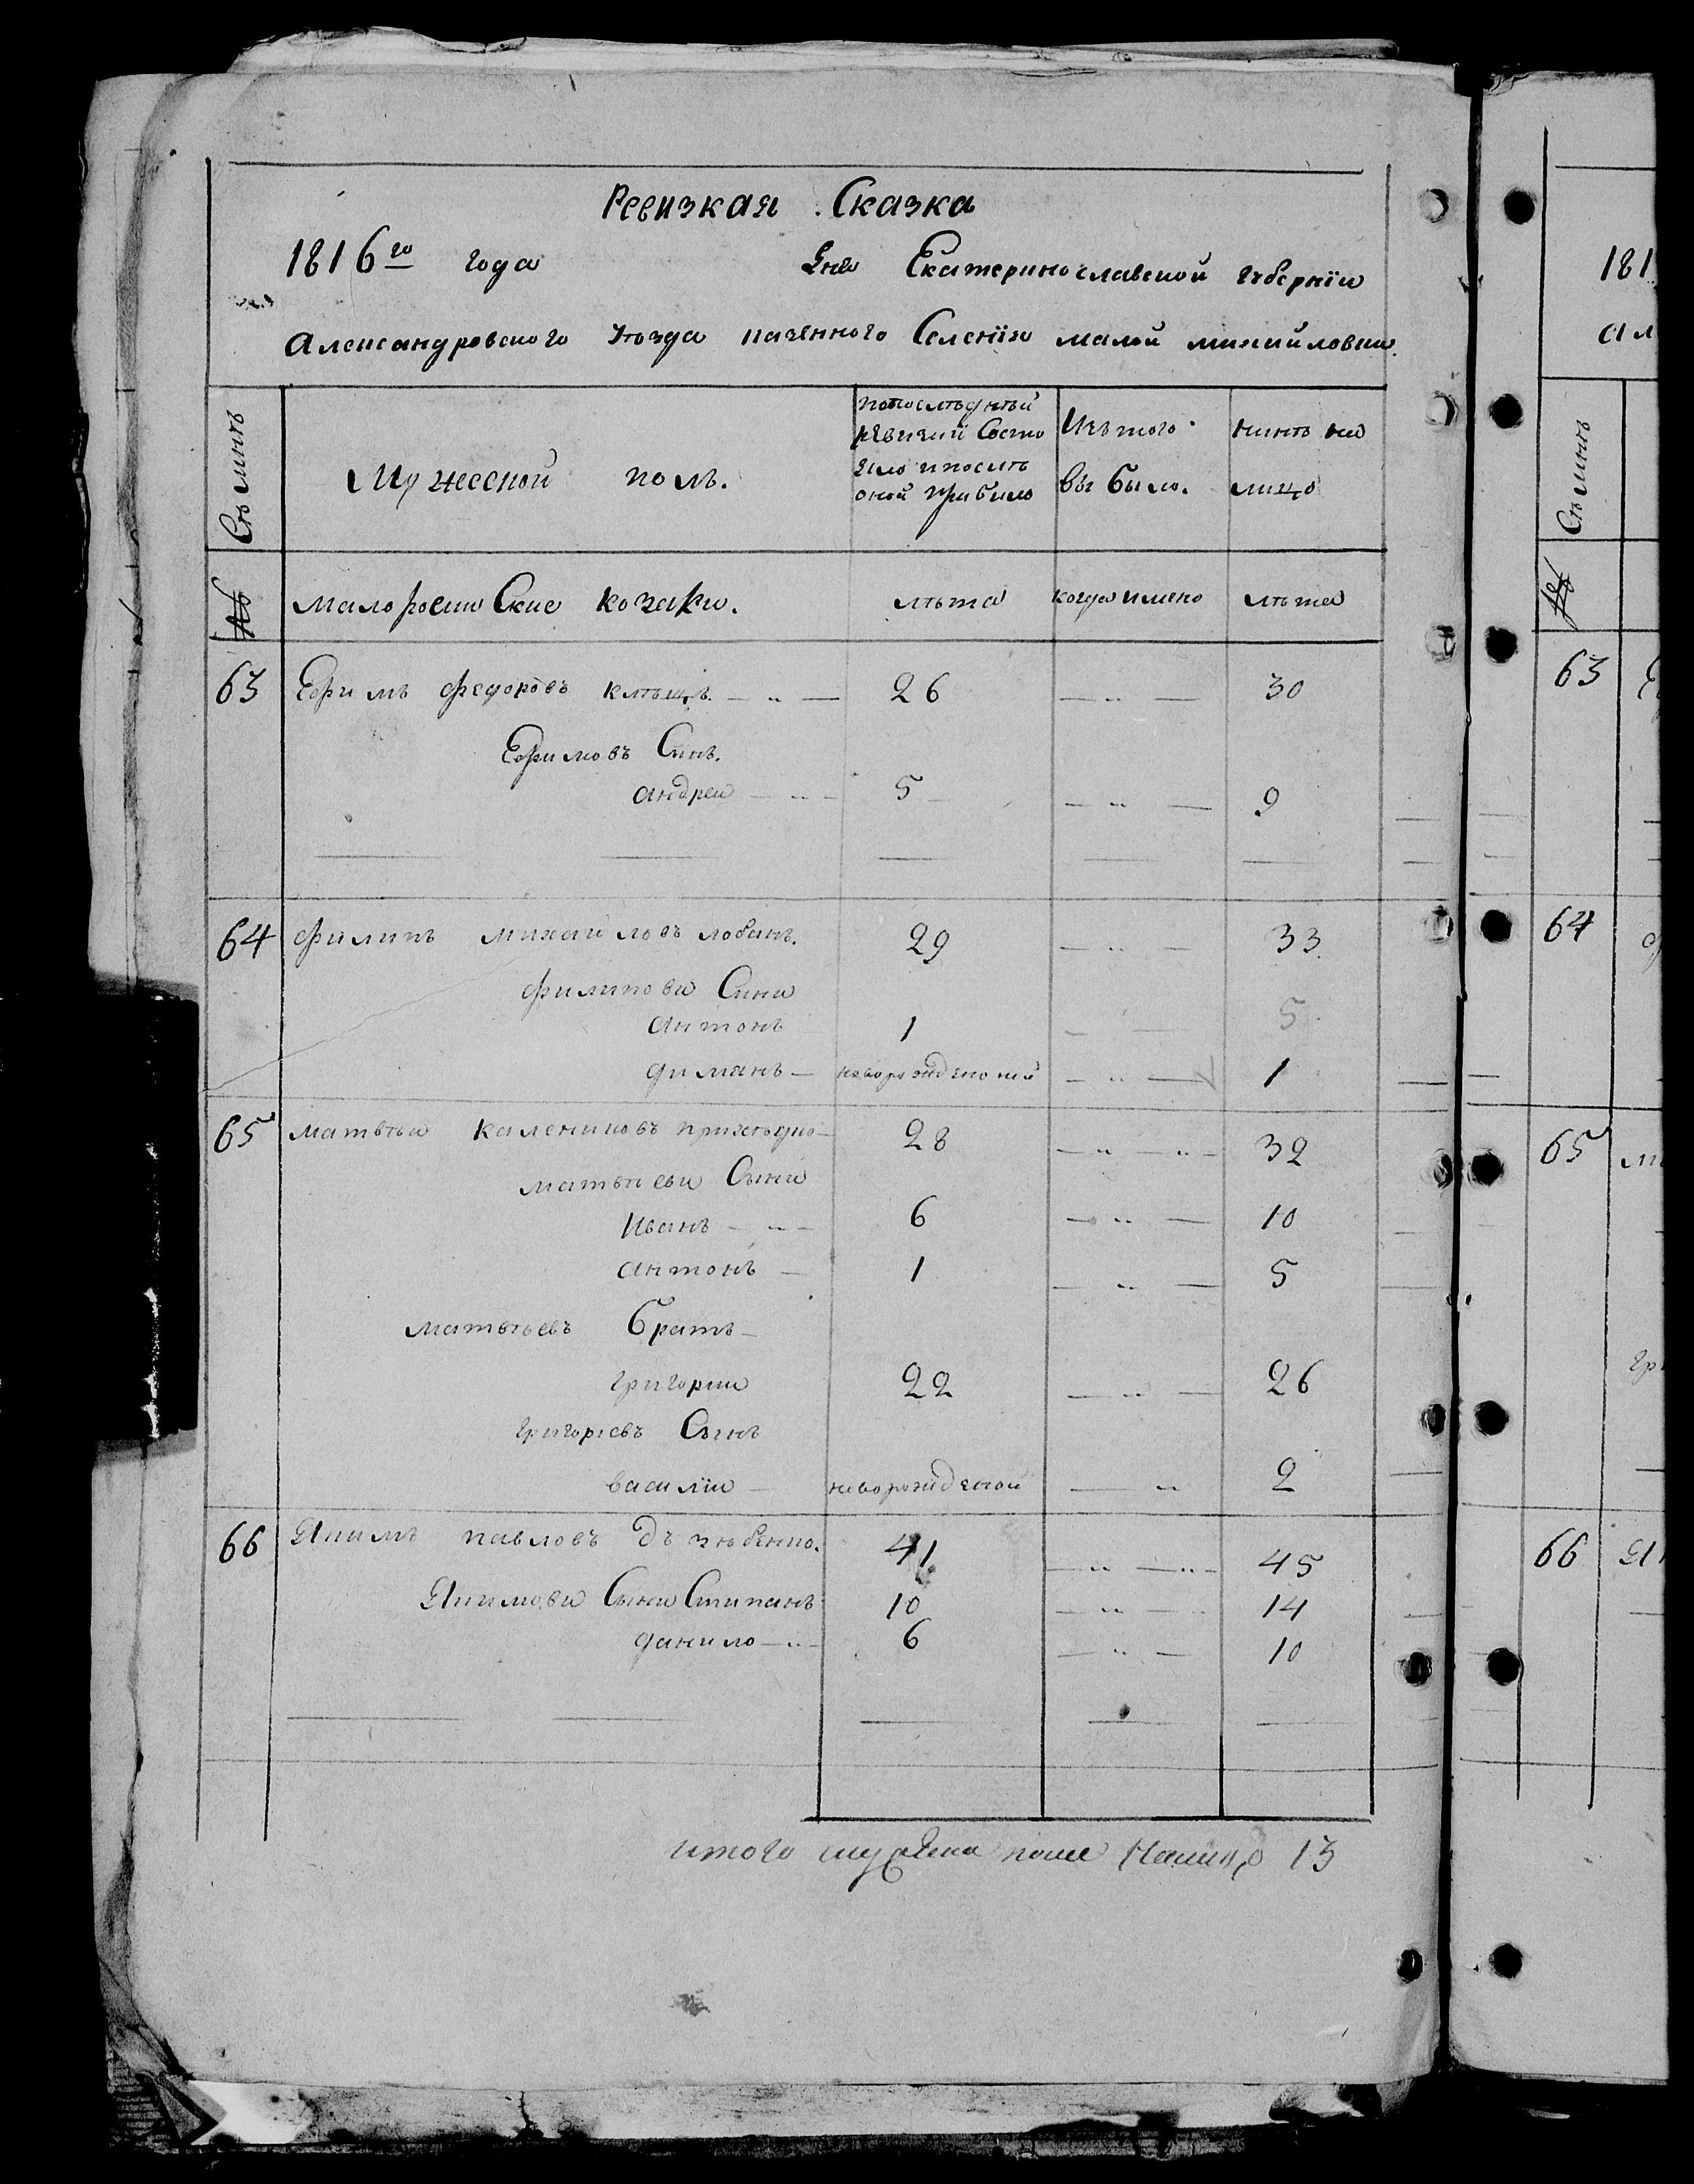 Ревизкая Сказка
1816го года Дня Екатеринославской губернїи
Александровского уѣзда казенного Селенїя малой михайловки
Сѣмикъ
Мужеской полъ.
попослѣдней
ревизии Состо
яло и послѣ
оной прибыло
Изъ того
выбыло.
нынѣ на
лицо
№
малоросииские козаки.
лѣта
когда имено
лѣта
63 Ефимъ федоровъ клѣщъ. — „ — 26 — „ — 30
Ефимовъ Синъ.
андреи — „ — 5 — „ — 9
64 филипъ михайловъ лобанъ. 29 — „ — 33
филипови Сини
антонъ 1 — „ — 5
димянъ — новорожденоний — „ — 1
65 матвѣи калениковъ прихѣдко — 28 — „ — „ — 32
матвѣеви Сыни
Иванъ — „ — 6 — „ — 10
антонъ — 1 — „ — 5
матвѣевъ братъ —
григории 22 — „ — 26
григориевъ Сынъ
василїи — новорожденой — „ 2
66 Якимъ павловъ дъзюбенко. 41 — „ — „ — 45
Якимови Сыни Стипанъ 10 — „ — 14
данило — „ — 6 — „ — 10
итого мужеска пола Налицо 13
181
ал
Сѣмикъ
№
63 Е
64 ф
65 ма
гри
66 Як